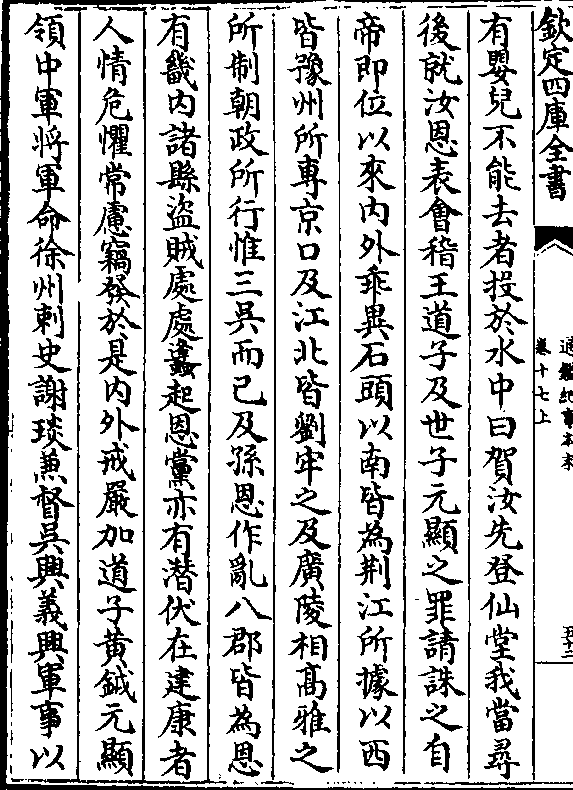 欽定四庫全書
通鑑紀事本末
卷十七上
五十二
有嬰兒不能去者投於水中曰賀汝先登仙堂我當尋
後就汝恩表會稽王道子及世子元顯之罪請誅之自
帝即位以來内外乖異石頭以南皆為荆江所據以西
皆豫州所專京口及江北皆劉牢之及廣陵相髙雅之
所制朝政所行惟三吳而已及孫恩作亂八郡皆為恩
有畿内諸縣盜賊處處蠭起恩黨亦有潛伏在建康者
人情危懼常慮竊發於是内外戒嚴加道子黃鉞元顯
領中軍將軍命徐州刺史謝琰兼督吳興義興軍事以